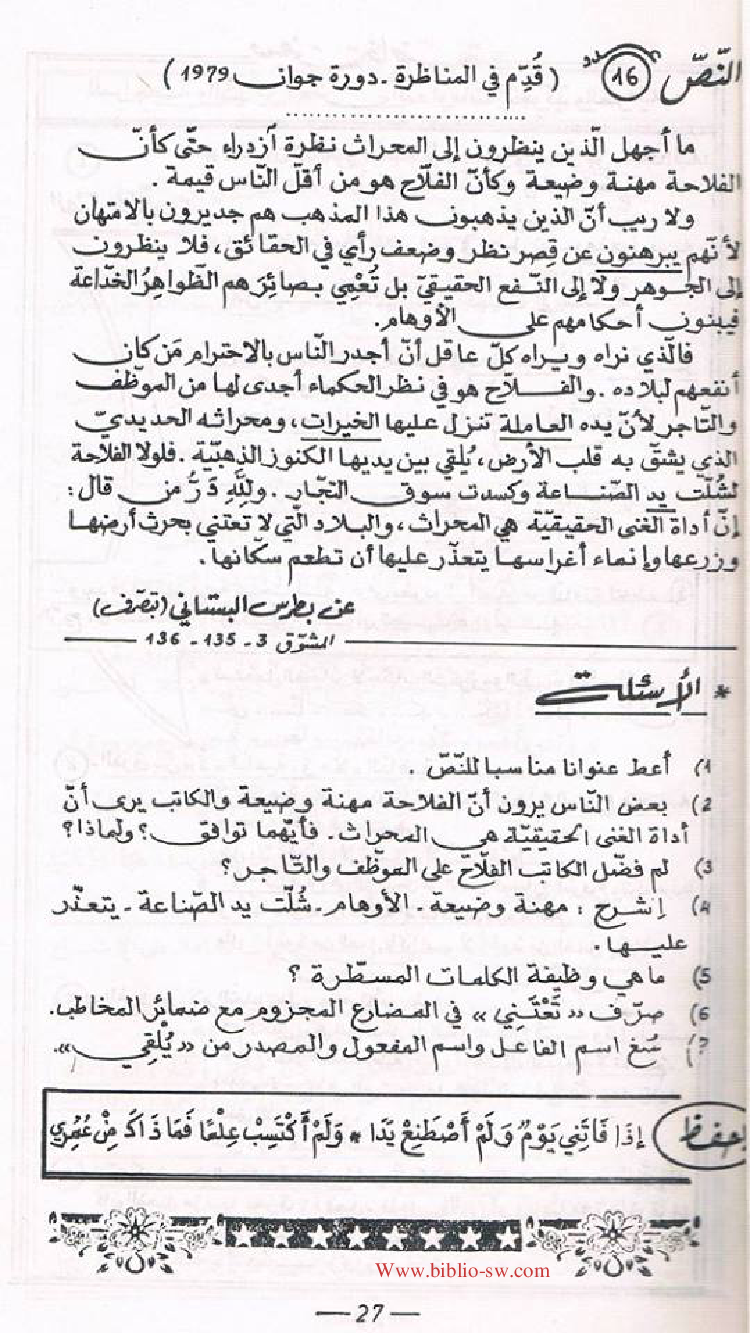 النّصّ عدد 16 ( قُدِّم في المناظرة - دورة جوان 1979 )
ما أجهل الّذين ينظرون إلى المحراث نظرة آزدراء حتّى كأنّ
الفلاحة مهنة وضيعة وكأنّ الفلاّح هو من أقلّ النّاس قيمة .
ولا ريب أنّ الذين يذهبون هذا المذهب هم جديرون بالامتهان
لأنّهم يبرهنون عن قِصر نظر وضعف رأي في الحقائق، فلا ينظرون
إلى الجوهر ولا إلى النّفع الحقيقيّ بل تُعْمِي بصائرَهم الظّواهرُ الخدّاعة
فيبنون أحكامهم على الأوهام.
فالّذي نراه ويراه كلّ عاقل أنّ أجدر النّاس بالاحترام مَن كان
أنفعهم لبلاده . والفلاّح هو في نظر الحكماء أجدى لها من الموظّف
والتّاجر لأنّ يده العاملة تنزل عليها الخيرات، ومحراثه الحديديّ
الذي يشقّ به قلب الأرض، يُلقي بين يديها الكنوز الذهبيّة . فلولا الفلاحة
لشُلّت يد الصّناعة وكسدت سوق التجّار . ولِلّهِ دَرُّ من قال :
إنّ أداة الغنى الحقيقيّة هي المحراث، والبلاد الّتي لا تعتني بحرث أرضها
وزرعها وإنماء أغراسها يتعذّر عليها أن تطعم سكّانها .
عن بطرس البستاني (بتصّرف)
المشوّق 3 - 135 - 136
* الأسئلة
1) أعط عنوانا مناسبا للنّصّ .
2) بعض النّاس يرون أنّ الفلاحة مهنة وضيعة والكاتب يرى أنّ
أداة الغنى الحقيقيّة هي المحراث. فأيّهما توافق ؟ ولماذا ؟
3) لم فضّل الكاتب الفلاّح على الموظّف والتّاجر ؟
4) إشرح : مهنة وضيعة - الأوهام - شُلّت يد الصّناعة - يتعذّر
عليها .
5) ما هي وظيفة الكلمات المسطّرة ؟
6) صرّف « تَعْتَنِي » في المضارع المجزوم مع ضمائر المخاطب.
7) صُغ اسم الفاعل واسم المفعول والمصدر من « يُلْقِي ».
إحفظ إذَا فَاتَنِي يَوْمٌ وَلَمْ أَصْطَنِعْ يَدًا * وَلَمْ أَكْتَسِبْ عِلْمًا فَمَا ذَاكَ مِنْ عُمْرِي
Www.biblio-sw.com
— 27 —